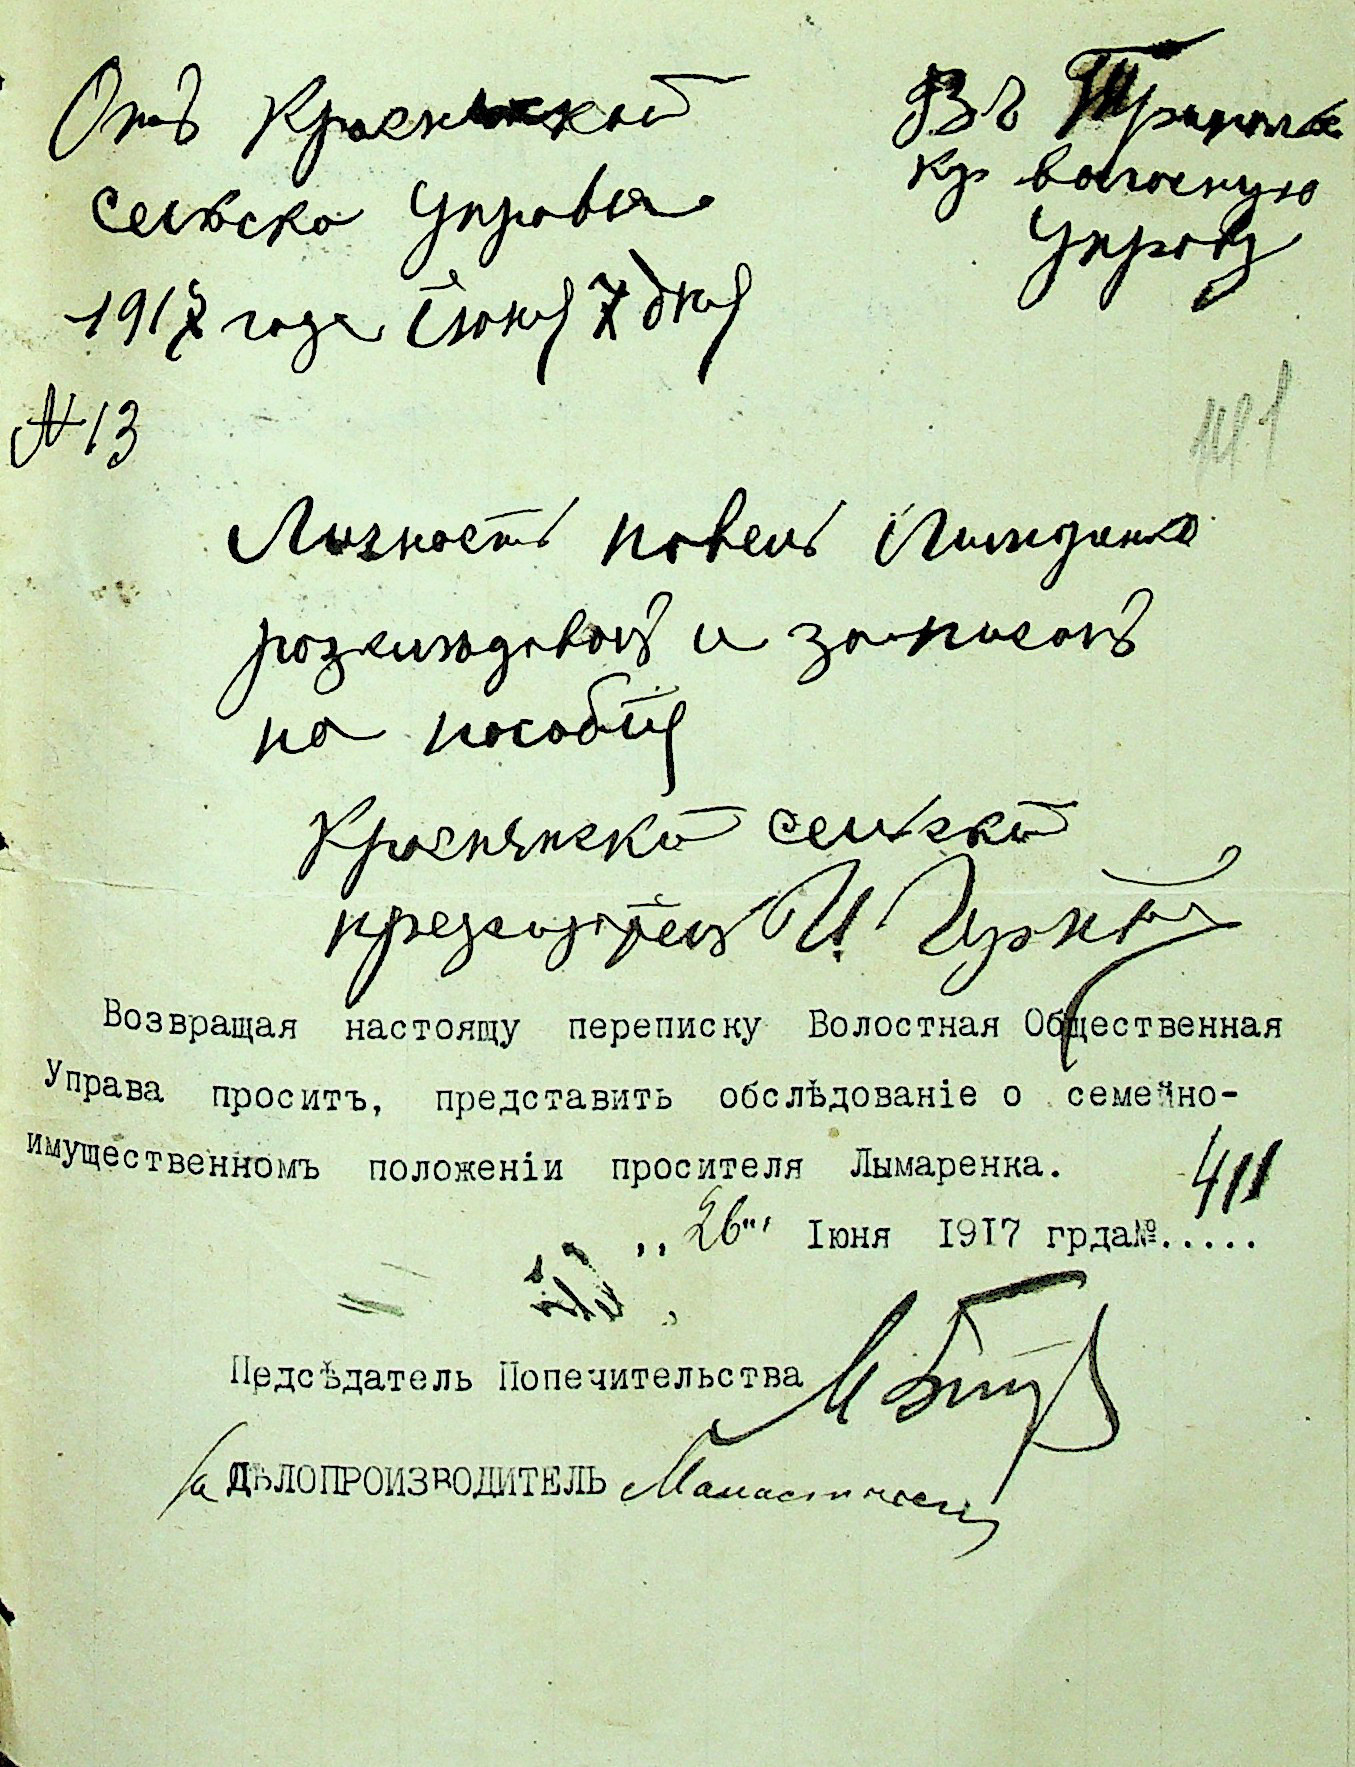 Отъ Красн кой
сельско Управы
1917 года Іюня 7 дня
№ 13
Въ Триполь
ку волосную
Управу
Личность павелъ Лимаренко
розслѣдовалъ и записалъ
на пособія
Краснянскій сельскій
предсидатель И
Возвращая настоящу переписку Волостная Общественная
Управа проситъ, представить обслѣдованіе о семейно-
имущественномъ положеніи просителя Лымаренка.
„26" Іюня 1917 грда № 411
Педсѣдатель Попечительства
/а ДѢЛОПРОИЗВОДИТЕЛЬ